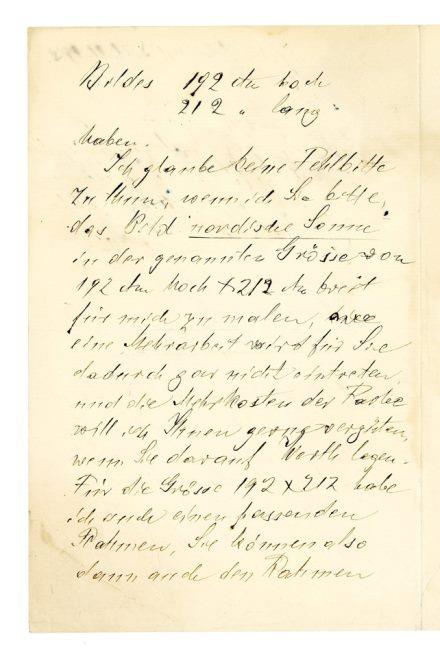 Bildes 192 ctm hoch
212 " lang
haben.
Ich glaube keine Fehlbitte
zu thun, wenn ich Sie bitte,
das Bild "nordische Sonne"
in der genannten Grösse von
192 ctm hoch X 212 ctm breit
für mich zu malen,
eine Mehrarbeit wird für Sie
dadurch gar nicht eintreten,
und die Mehrkosten der Farbe
will ich Ihnen gerne vergüten,
wenn Sie darauf Werth legen.
Für die Grösse 192 X 212 habe
ich auch einen passenden
Rahmen, Sie können also
dann auch den Rahmen